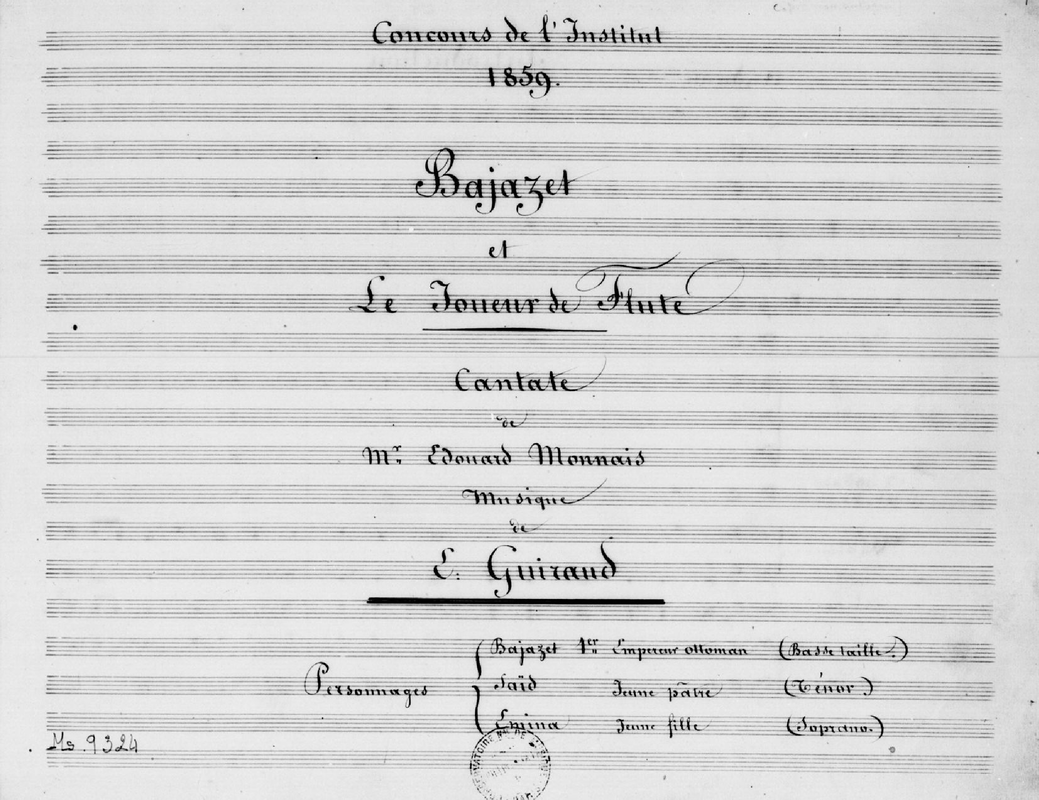 Concours de l'Institut
1859.
Bajazet
et
Le Joueur de Flute
Cantate
de
Mr. Edouard Monnais
Musique
de
E. Guiraud
Personnages
Bajazet 1er Empereur ottoman (Basse taille.)
Saïd Jeune pâtre (Ténor.)
Emina Jeune fille (Soprano.)
Ms. 9324